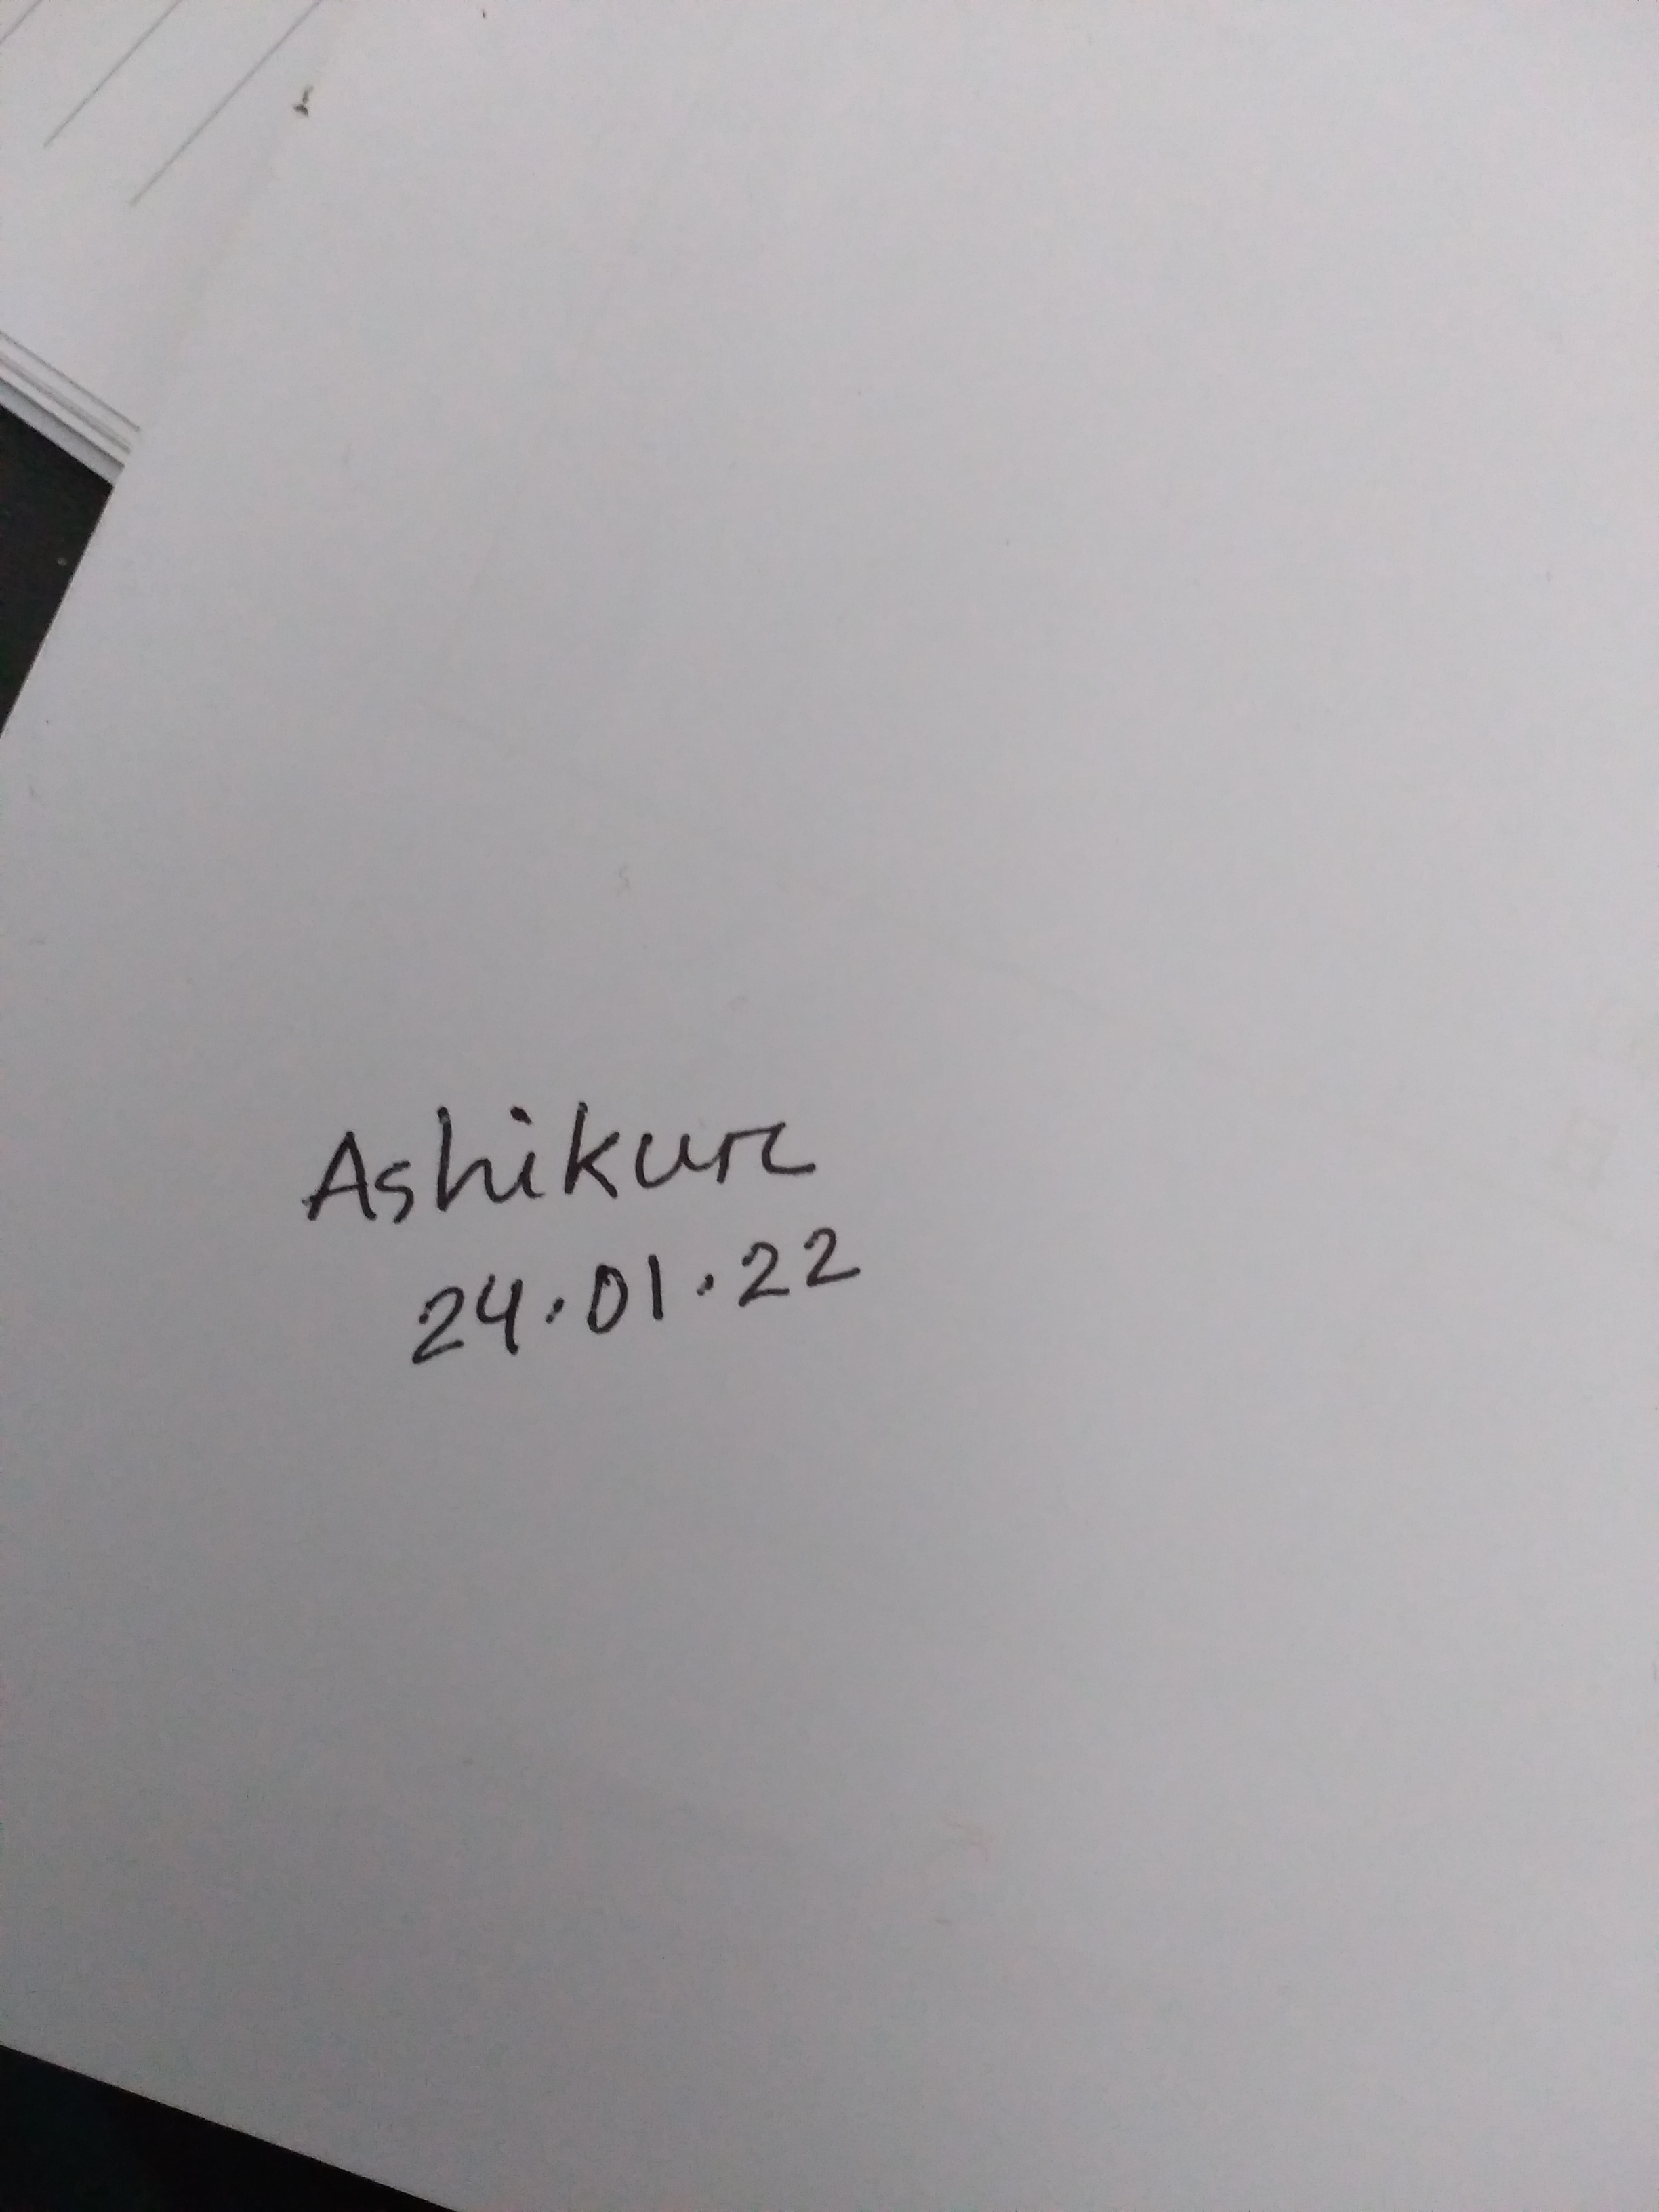 Ashikur
24.01.22